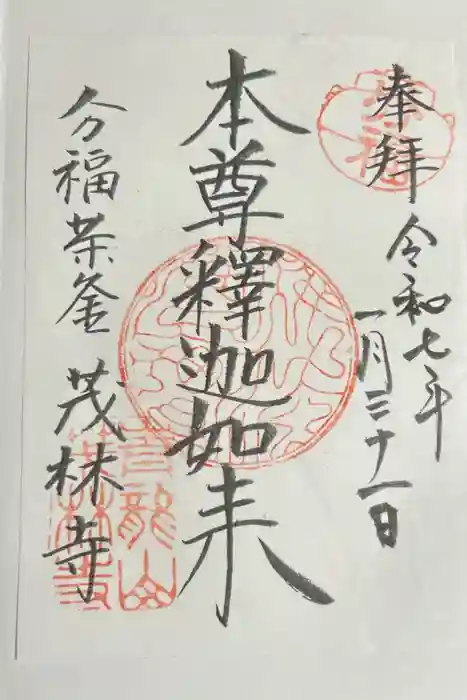 奉拝
令和七年
一月三十一日
本尊釋迦如来
分福茶釜 茂林寺
青龍山
茂林寺